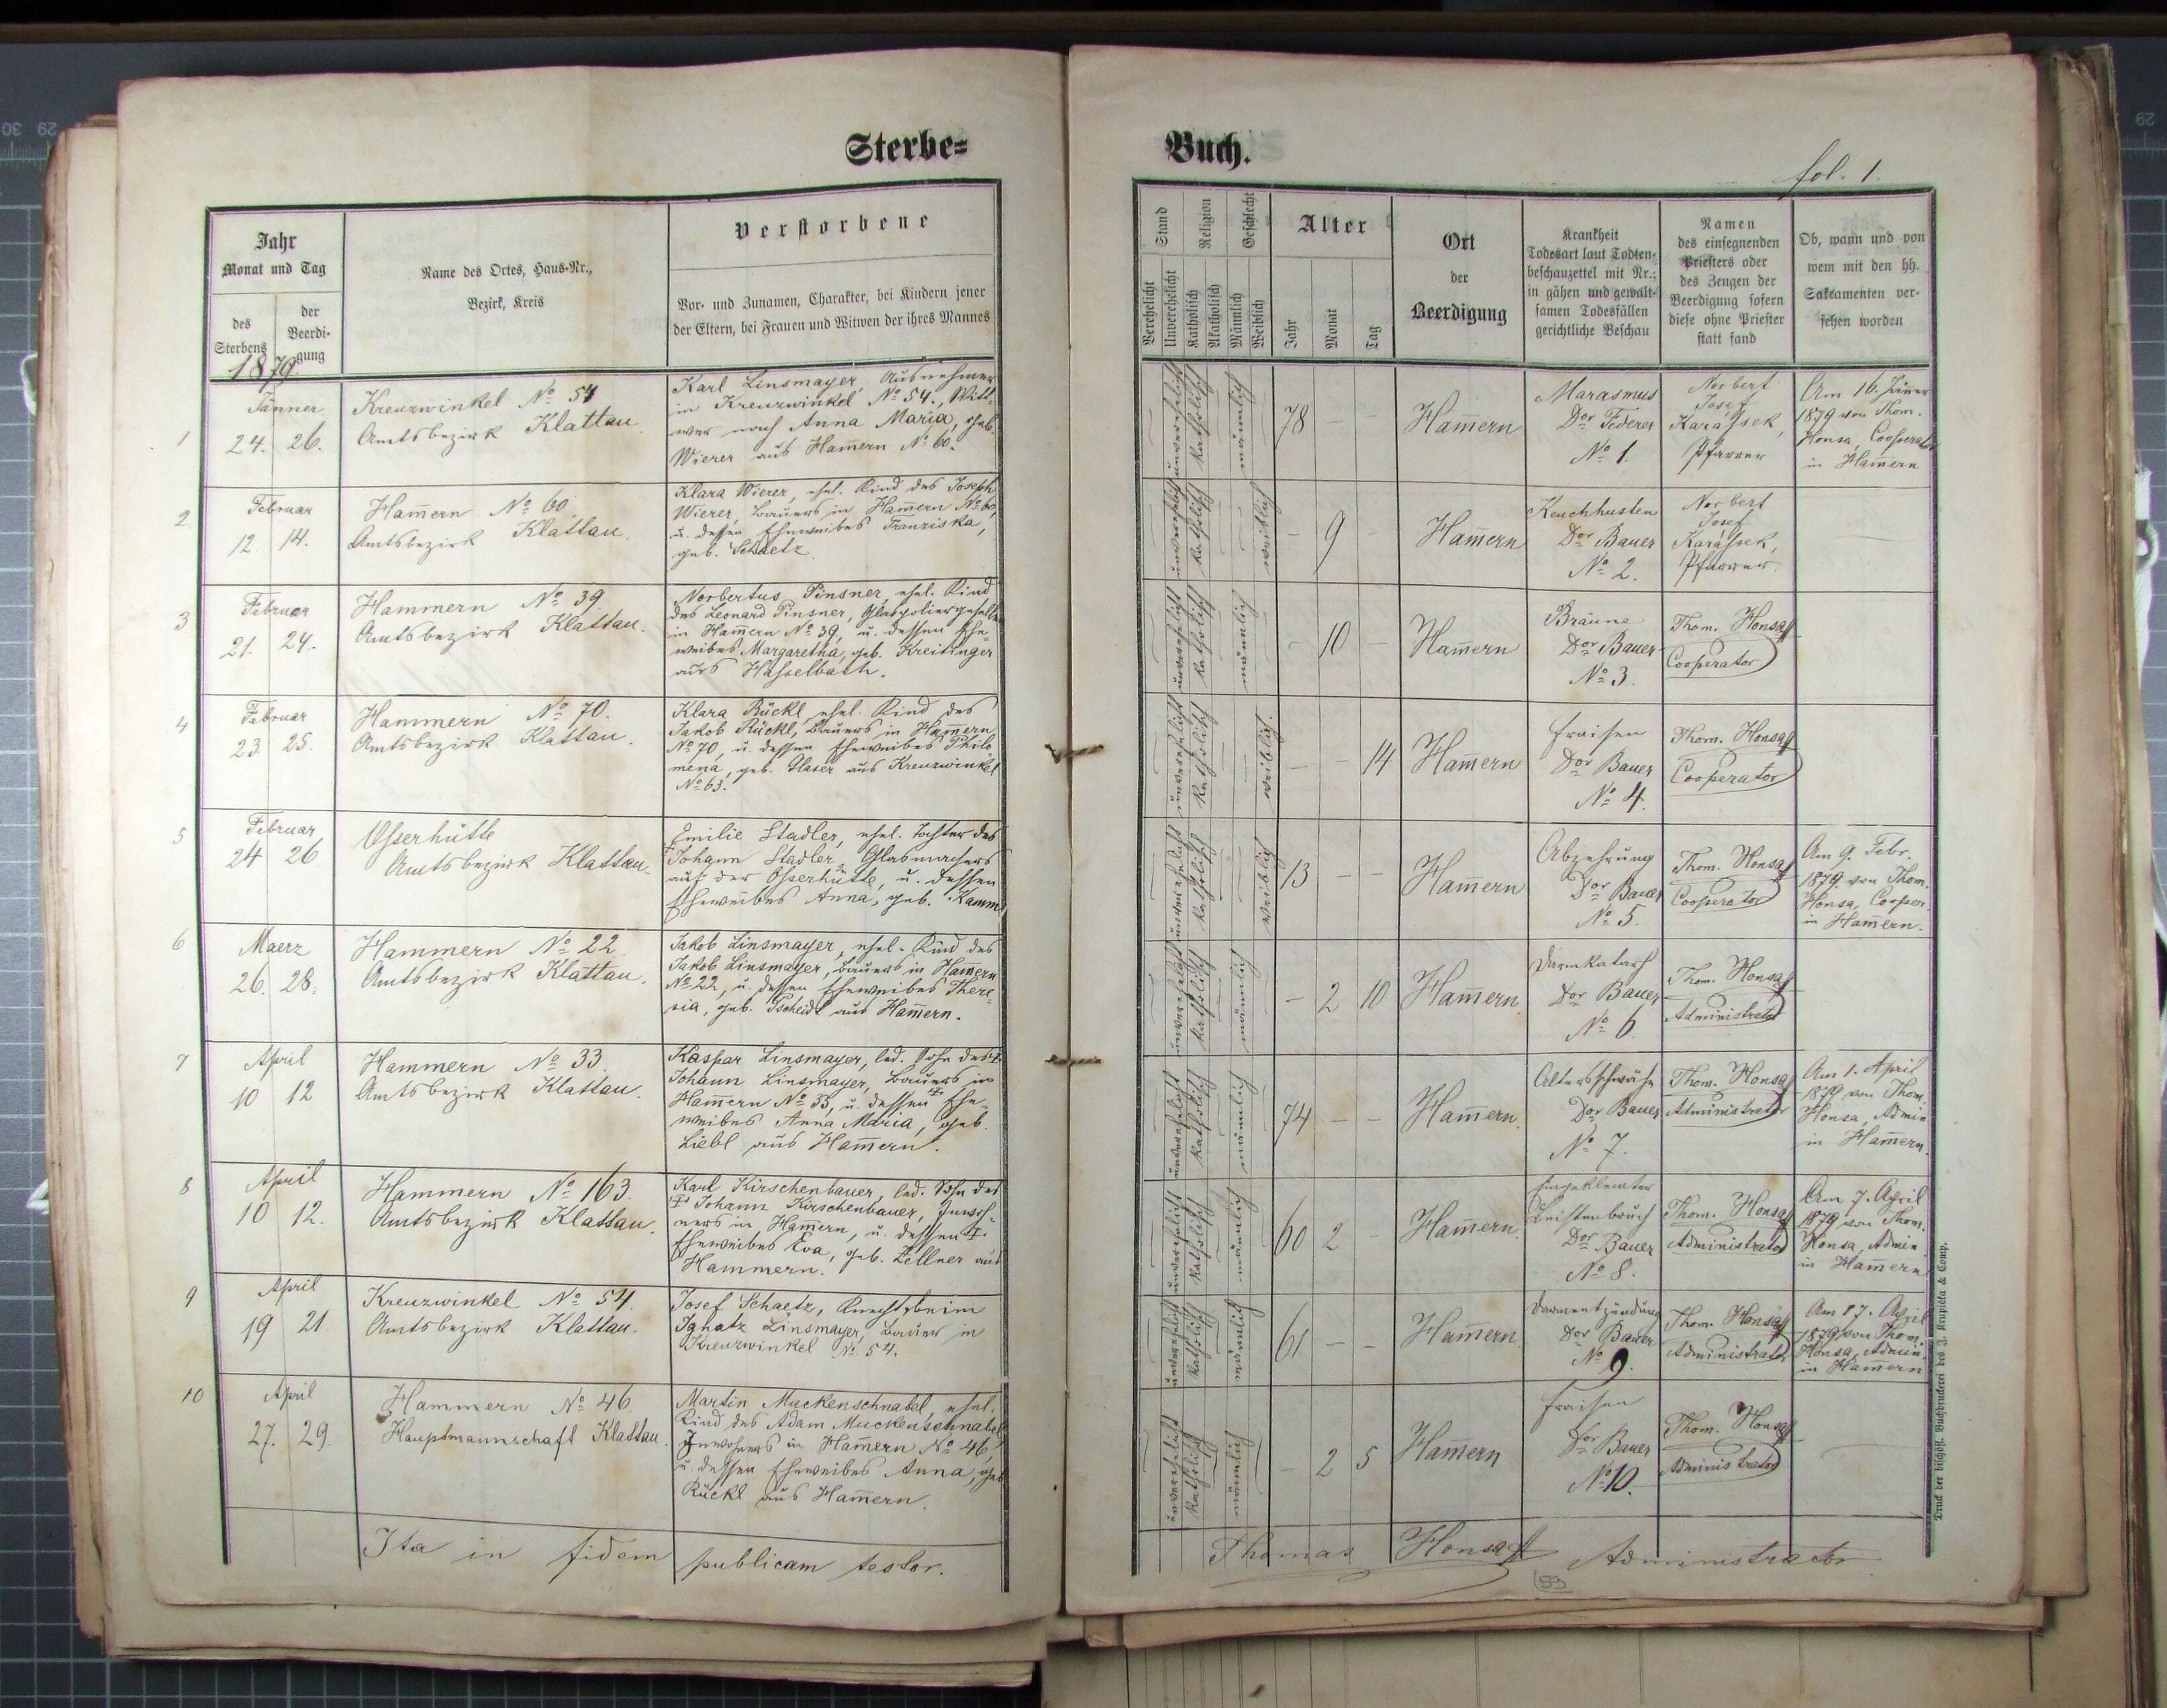 Sterbe=
Jahr
Monat und Tag
des
Sterbens
der
Beerdi-
gung
Name des Ortes, Haus-Nr.,
Bezirk, Kreis
Verstorbene
Vor- und Zunamen, Charakter, bei Kindern jener
der Eltern, bei Frauen und Witwen der ihres Mannes
1879.
1
Jänner
24. 26.
Kreuzwinkel No 54
Amtsbezirk Klattau.
Karl Linsmayer, Ausnehmer
in Kreuzwinkel No 54., Witt-
wer nach Anna Maria, geb.
Wierer aus Ham̄ern No 60.
2
Februar
12. 14.
Ham̄ern No 60.
Amtsbezirk Klattau.
Klara Wierer, ehel. Kind des Joseph
Wierer, Bauers in Ham̄ern No 60,
u. dessen Eheweibes Franziska,
geb. Schaetz.
3
Februar
21. 24.
Hammern No 39.
Amtsbezirk Klattau.
Norbertus Pinsner, ehel. Kind
des Leonard Pinsner, Glaspoliergeselle
in Ham̄ern No 39, u. dessen Ehe-
weibes Margaretha, geb. Kreitinger
aus Hasselbach.
4
Februar
23. 25.
Hammern No 70.
Amtsbezirk Klattau.
Klara Rückl, ehel. Kind des
Jakob Rückl, Bauers in Ham̄ern
No 70, u. dessen Eheweibes Philo
mena, geb. Glaser aus Kreuzwinkel
No 63.
5
Februar
24 26
Osserhütte
Amtsbezirk Klattau.
Emilie Stadler, ehel. Tochter des
Johann Stadler, Glasmachers
auf der Osserhütte, u. dessen
Eheweibes Anna, geb. Kamm
6
Maerz
26. 28.
Hammern No 22.
Amtsbezirk Klattau.
Jakob Linsmayer, ehel. Kind des
Jakob Linsmayer, Bauers in Ham̄ern
No 22, u. dessen Eheweibes There-
sia, geb. Tscheidl aus Ham̄ern.
7
April
10 12
Hammern No 33.
Amtsbezirk Klattau.
Kaspar Linsmayer, led. Sohn des †
Johann Linsmayer, Bauers in
Ham̄ern No 33, u. dessen † Ehe-
weibes Anna Maria, geb.
Liebl aus Ham̄ern.
8
April
10 12.
Hammern No 163.
Amtsbezirk Klattau.
Karl Kirschenbauer, led. Sohn des
† Johann Kirschenbauer, Inwoh-
ners in Ham̄ern, u. dessen †
Eheweibes Eva, geb. Zellner aus
Hammern.
9
April
19 21
Kreuzwinkel No 54.
Amtsbezirk Klattau.
Josef Schaetz, Knecht beim
Ignatz Linsmayer, Bauer in
Kreuzwinkel No 54.
10
April
27. 29.
Hammern No 46.
Hauptmannschaft Klattau.
Martin Muckenschnabel, ehel.
Kind des Adam Muckenschnabel
Inwohners in Ham̄ern No 46,
u. dessen Eheweibes Anna, geb.
Rückl aus Ham̄ern.
Ita in fidem publicam testor.
Buch.
fol. 1.
Stand
Verehelicht
Unverehelicht
Religion
Katholisch
Akatholisch
Geschlecht
Männlich
Weiblich
Alter
Jahr
Monat
Tag
Ort
der
Beerdigung
Krankheit
Todesart laut Todten-
beschauzettel mit Nr.;
in gähen und gewalt-
samen Todesfällen
gerichtliche Beschau
Namen
des einsegnenden
Priesters oder
des Zeugen der
Beerdigung sofern
diese ohne Priester
statt fand
Ob, wann und von
wem mit den hh.
Sakramenten ver-
sehen worden
unverehelicht
katholisch
männlich
78 — —
Ham̄ern
Marasmus
Dor Federer
No 1.
Norbert
Josef
Karássek,
Pfarrer
Am 16. Jäner
1879 von Thom.
Honsa, Cooperator
in Ham̄ern
unverehelicht
katholisch
weiblich
— 9 —
Ham̄ern
Keuchhusten
Dor Bauer
No 2.
Norbert
Josef
Karássek,
Pfarrer.
unverehelicht
katholisch
männlich
— 10 —
Ham̄ern
Bräune
Dor Bauer
No 3.
Thom. Honsa
Cooperator
unverehelicht
katholisch
weiblich.
— — 14
Ham̄ern
Fraisen
Dor Bauer
No 4.
Thom. Honsa
Cooperator
unverehelicht
katholisch
weiblich
13 — —
Ham̄ern
Abzehrung
Dor Bauer
No 5.
Thom. Honsa
Cooperator
Am 9. Febr.
1879 von Thom.
Honsa, Cooper.
in Ham̄ern.
unverehelicht
katholisch
männlich
— 2 10
Ham̄ern.
Darmkatarh
Dor Bauer
No 6
Thom. Honsa
Administrator
unverehelicht
katholisch
männlich
74 — —
Ham̄ern.
Altersschwäche
Dor Bauer
No 7.
Thom. Honsa
Administrator
Am 1. April
1879 von Thom.
Honsa, Admin
in Ham̄ern.
unverehelicht
katholisch
männlich
60 2 —
Ham̄ern.
Eingeklemter
Leistenbruch
Dor Bauer
No 8.
Thom. Honsa
Administrator
Am 7. April
1879 von Thom.
Honsa, Admin
in Ham̄ern
unverehelicht
katholisch
männlich
61 — —
Ham̄ern.
Darmentzündung
Dor Bauer
No 9.
Thom. Honsa
Administrator
Am 17. April
1879 von Thom.
Honsa, Admin.
in Ham̄ern
unverehelicht
katholisch
männlich
— 2 5
Ham̄ern
Fraisen
Dor Bauer
No 10.
Thom. Honsa
Administrator
Thomas Honsa Administrator
53
Druck der bischöfl. Buchdruckerei des J. Krupicka & Comp.
29
30
29